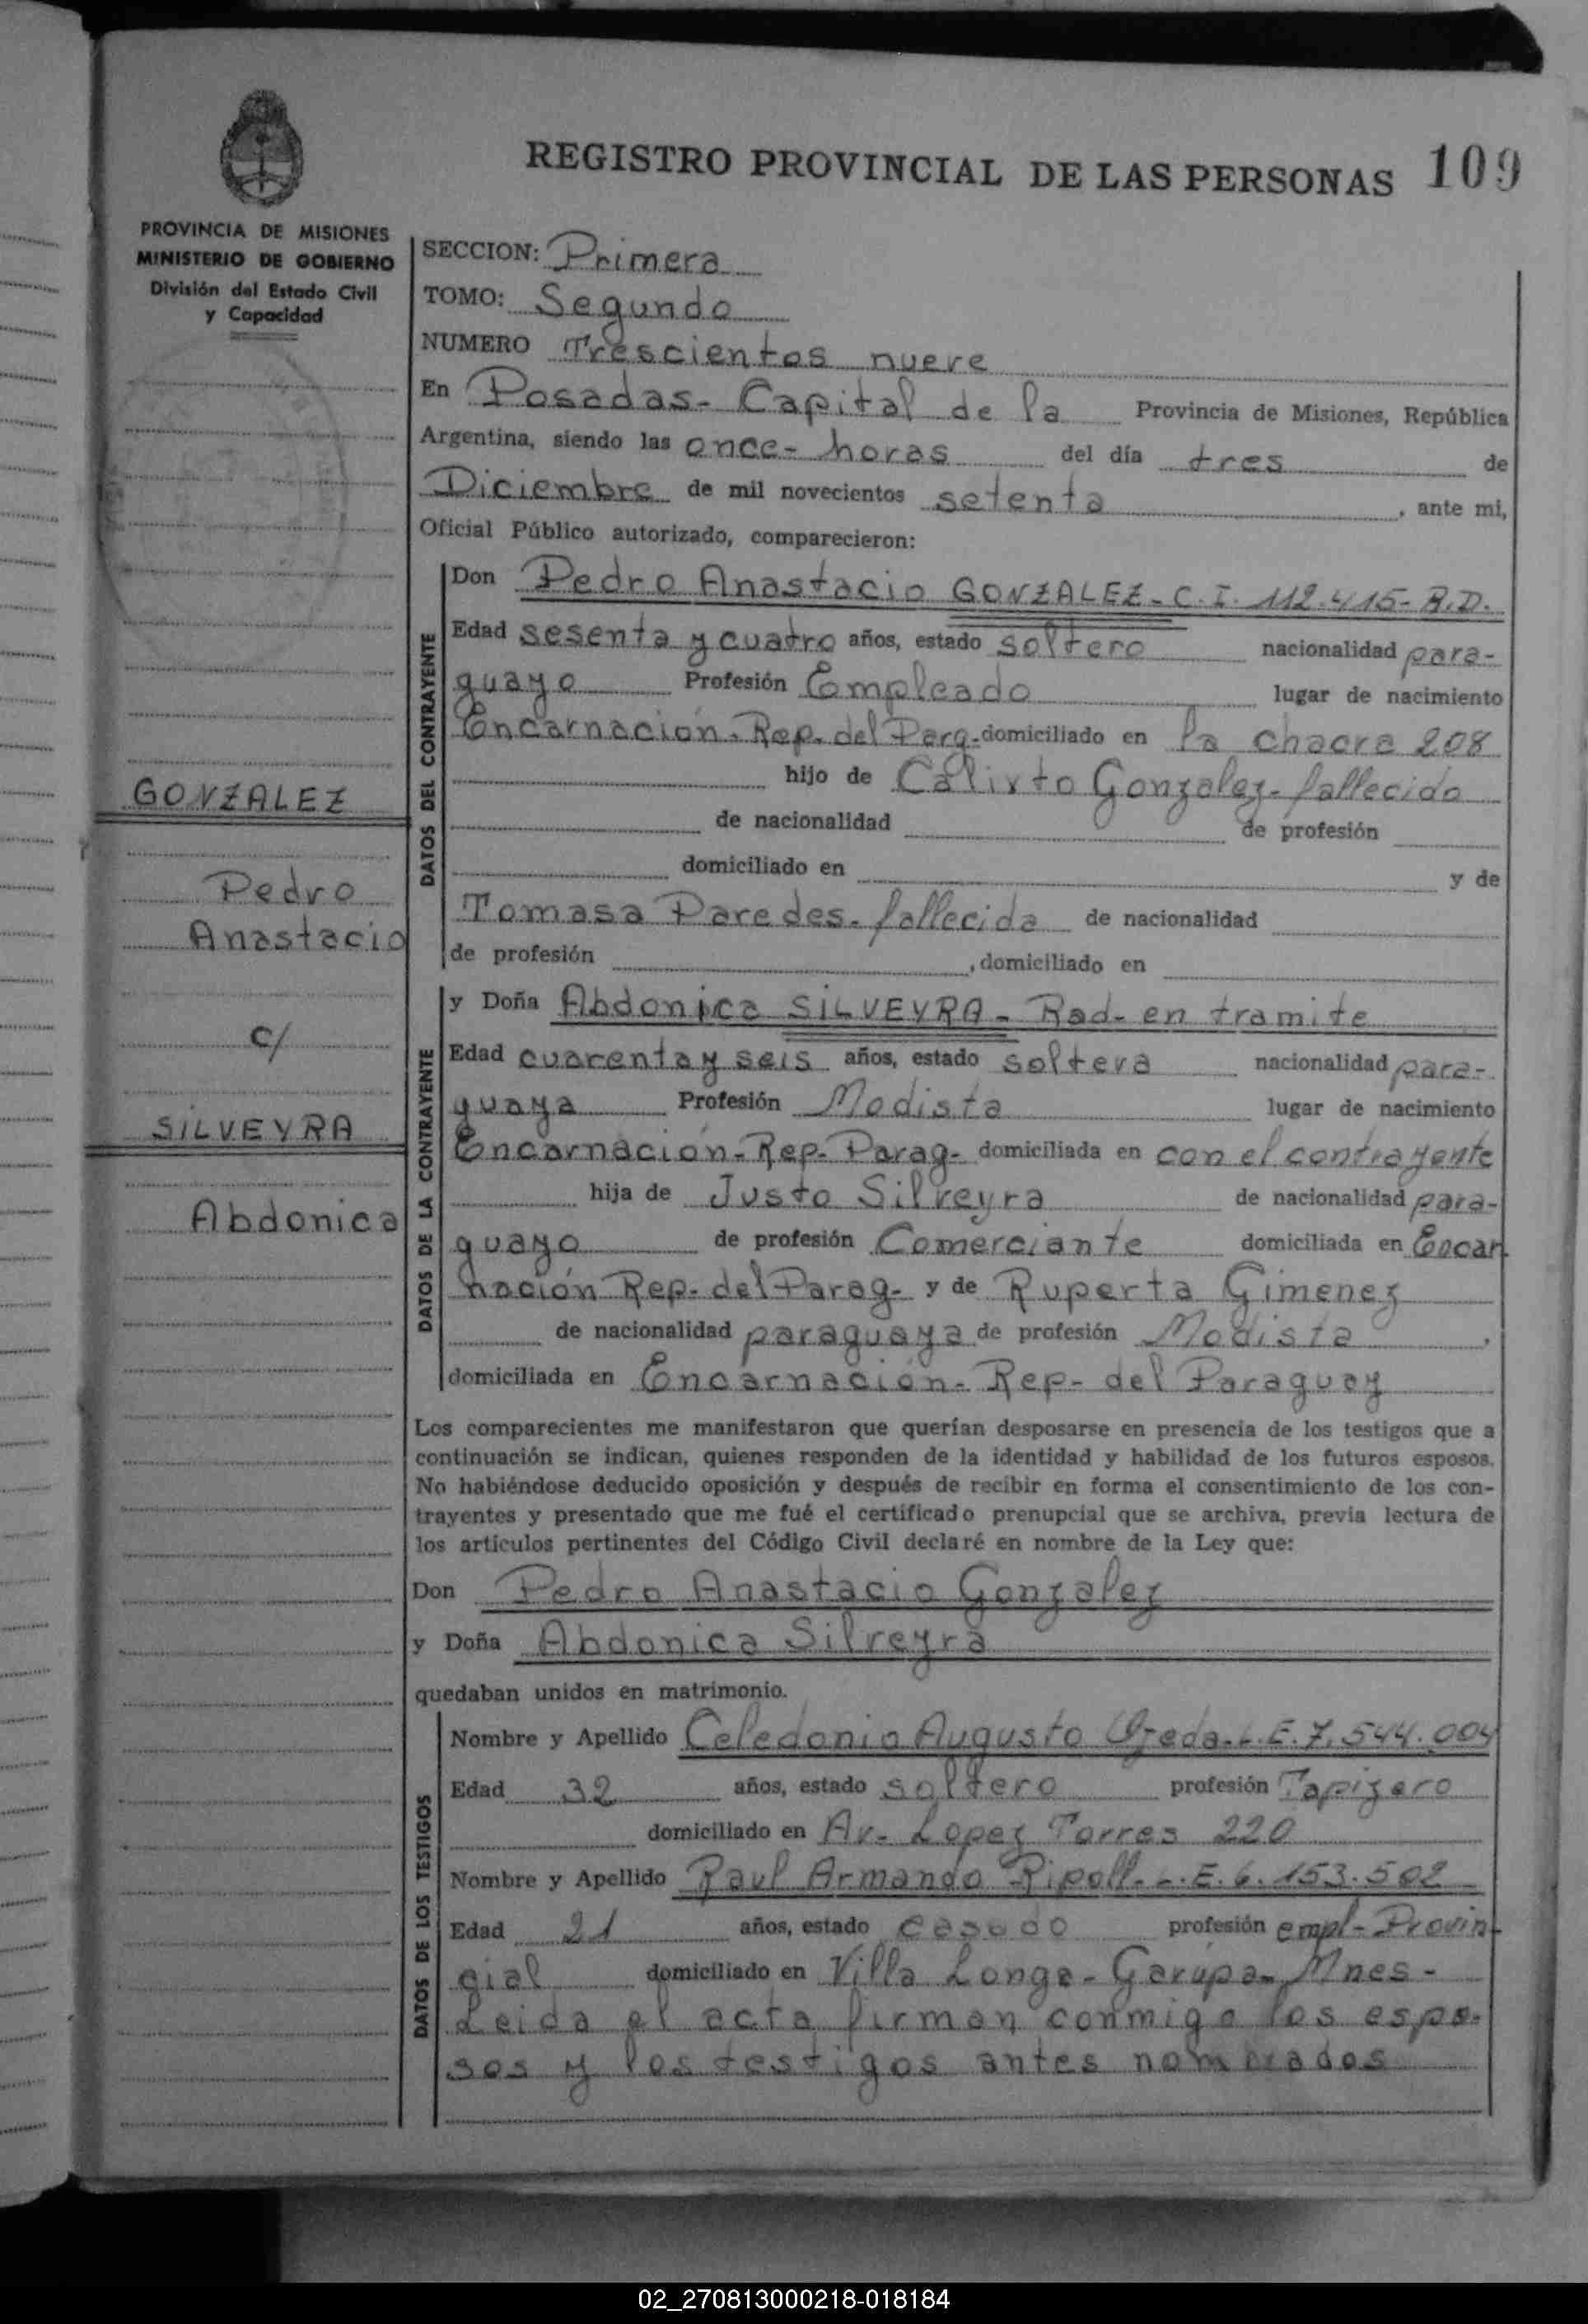 REGISTRO PROVINCIAL DE LAS PERSONAS 109
PROVINCIA DE MISIONES
MINISTERIO DE GOBIERNO
División del Estado Civil
y Capacidad
SECCION: Primera
TOMO: Segundo
NUMERO Trescientos nueve
En Posadas- Capital de la Provincia de Misiones, República
Argentina, siendo las once- horas del día tres de
Diciembre de mil novecientos setenta, ante mi,
Oficial Público autorizado, comparecieron:
DATOS DEL CONTRAYENTE
Don Pedro Anastacio GONZALEZ- C.I. 112.415- R.D.
Edad sesenta y cuatro años, estado soltero nacionalidad para-
guayo Profesión Empleado lugar de nacimiento
Encarnación. Rep. del Parg. domiciliado en la chacra 208
hijo de Calixto Gonzalez- fallecido
de nacionalidad de profesión
domiciliado en y de
Tomasa Paredes. fallecida de nacionalidad
de profesión , domiciliado en
GONZALEZ
Pedro
Anastacio
c/
SILVEYRA
Abdonica
DATOS DE LA CONTRAYENTE
y Doña Abdonica SILVEYRA- Rad- en tramite
Edad cuarenta y seis años, estado soltera nacionalidad para-
guaya Profesión Modista lugar de nacimiento
Encarnación- Rep- Parag- domiciliada en con el contrayente
hija de Justo Silveyra de nacionalidad para-
guayo de profesión Comerciante domiciliada en Encar
nación Rep. del Parag- y de Ruperta Gimenez
de nacionalidad paraguaya de profesión Modista ,
domiciliada en Encarnación- Rep- del Paraguay
Los comparecientes me manifestaron que querían desposarse en presencia de los testigos que a
continuación se indican, quienes responden de la identidad y habilidad de los futuros esposos.
No habiéndose deducido oposición y después de recibir en forma el consentimiento de los con-
trayentes y presentado que me fué el certificado prenupcial que se archiva, previa lectura de
los artículos pertinentes del Código Civil declaré en nombre de la Ley que:
Don Pedro Anastacio Gonzalez
y Doña Abdonica Silveyra
quedaban unidos en matrimonio.
DATOS DE LOS TESTIGOS
Nombre y Apellido Celedonio Augusto Ojeda- L.E. 7.544.004
Edad 32 años, estado soltero profesión Tapizero
domiciliado en Av- Lopez Torres 220
Nombre y Apellido Raul Armando Ripoll- L.E. 6.153.502
Edad 21 años, estado casado profesión empl- Provin
cial domiciliado en Villa Longa- Garupa- Mnes-
Leida el acta firman conmigo los espo-
sos y los testigos antes nombrados
02_270813000218-018184